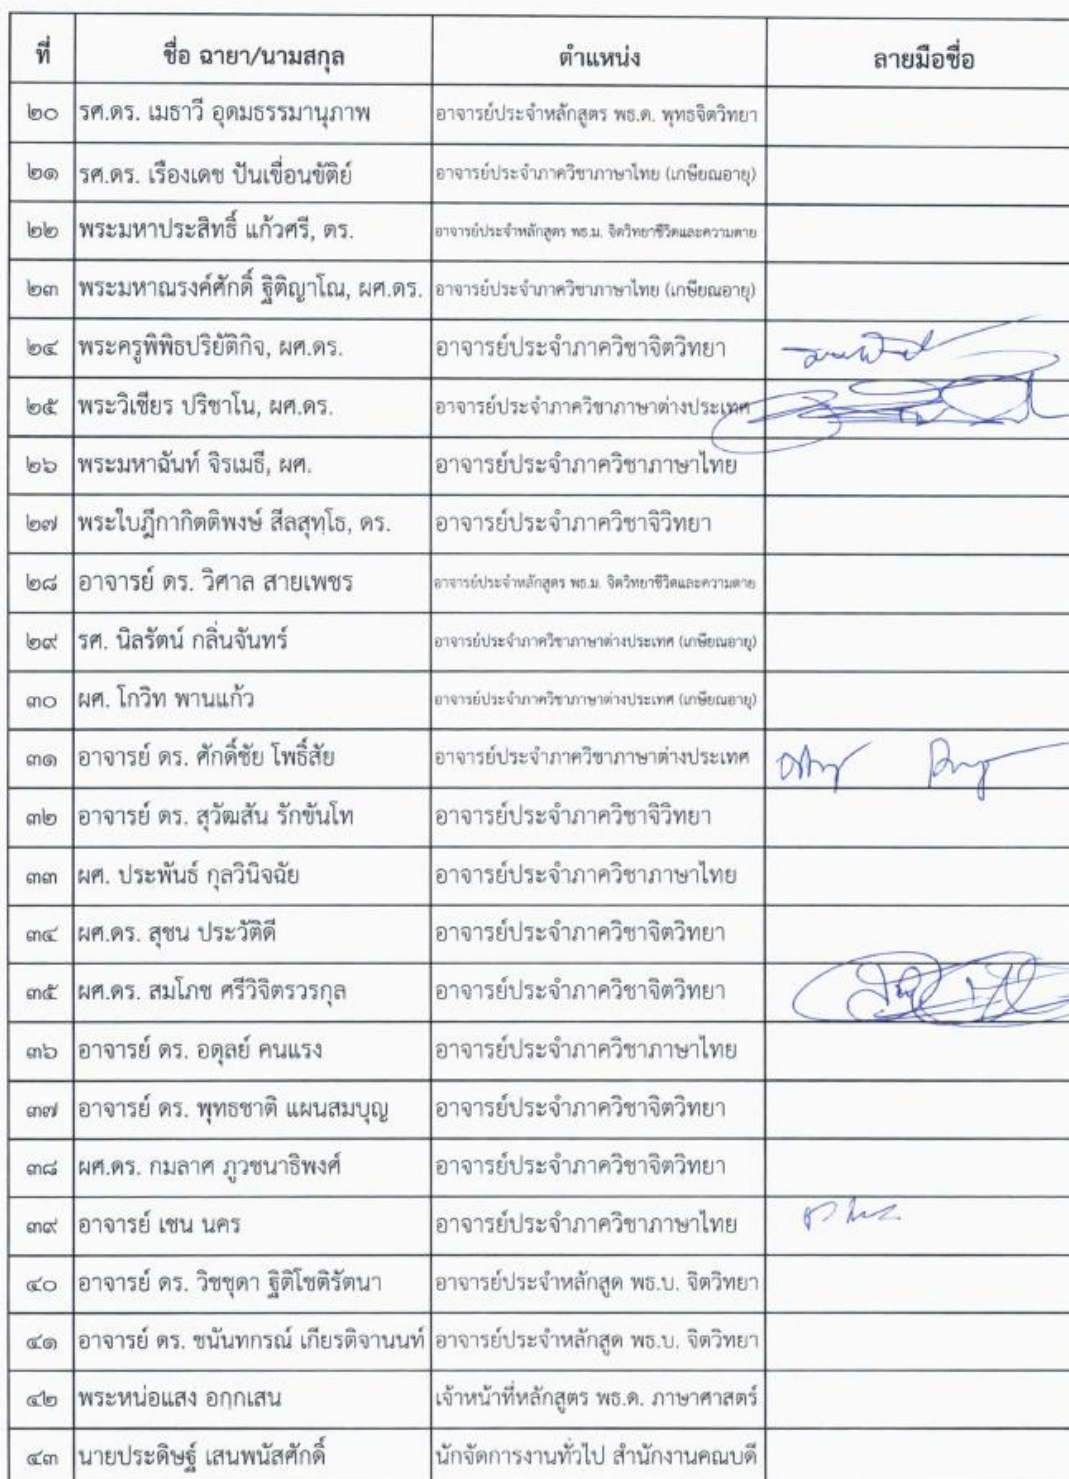 ที่ ชื่อ ฉายา/นามสกุล ตำแหน่ง ลายมือชื่อ
๒๐ รศ.ดร. เมธาวี อุดมธรรมานุภาพ อาจารย์ประจำหลักสูตร พธ.ด. พุทธจิตวิทยา
๒๑ รศ.ดร. เรืองเดช ปันเขื่อนขัติย์ อาจารย์ประจำภาควิชาภาษาไทย (เกษียณอายุ)
๒๒ พระมหาประสิทธิ์ แก้วศรี, ดร. อาจารย์ประจำหลักสูตร พธ.ม. จิตวิทยาชีวิตและความตาย
๒๓ พระมหาณรงค์ศักดิ์ ฐิติญาโณ, ผศ.ดร. อาจารย์ประจำภาควิชาภาษาไทย (เกษียณอายุ)
๒๔ พระครูพิพิธปริยัติกิจ, ผศ.ดร. อาจารย์ประจำภาควิชาจิตวิทยา
๒๕ พระวิเชียร ปริชาโน, ผศ.ดร. อาจารย์ประจำภาควิชาภาษาต่างประเทศ
๒๖ พระมหาฉันท์ จิรเมธี, ผศ. อาจารย์ประจำภาควิชาภาษาไทย
๒๗ พระใบฎีกากิตติพงษ์ สีลสุทฺโธ, ดร. อาจารย์ประจำภาควิชาจิวิทยา
๒๘ อาจารย์ ดร. วิศาล สายเพชร อาจารย์ประจำหลักสูตร พธ.ม. จิตวิทยาชีวิตและความตาย
๒๙ รศ. นิลรัตน์ กลิ่นจันทร์ อาจารย์ประจำภาควิชาภาษาต่างประเทศ (เกษียณอายุ)
๓๐ ผศ. โกวิท พานแก้ว อาจารย์ประจำภาควิชาภาษาต่างประเทศ (เกษียณอายุ)
๓๑ อาจารย์ ดร. ศักดิ์ชัย โพธิ์สัย อาจารย์ประจำภาควิชาภาษาต่างประเทศ
๓๒ อาจารย์ ดร. สุวัฒสัน รักขันโท อาจารย์ประจำภาควิชาจิวิทยา
๓๓ ผศ. ประพันธ์ กุลวินิจฉัย อาจารย์ประจำภาควิชาภาษาไทย
๓๔ ผศ.ดร. สุชน ประวัติดี อาจารย์ประจำภาควิชาจิตวิทยา
๓๕ ผศ.ดร. สมโภช ศรีวิจิตรวรกุล อาจารย์ประจำภาควิชาจิตวิทยา
๓๖ อาจารย์ ดร. อดุลย์ คนแรง อาจารย์ประจำภาควิชาภาษาไทย
๓๗ อาจารย์ ดร. พุทธชาติ แผนสมบุญ อาจารย์ประจำภาควิชาจิตวิทยา
๓๘ ผศ.ดร. กมลาศ ภูวชนาธิพงศ์ อาจารย์ประจำภาควิชาจิตวิทยา
๓๙ อาจารย์ เชน นคร อาจารย์ประจำภาควิชาภาษาไทย
๔๐ อาจารย์ ดร. วิชชุดา ฐิติโชติรัตนา อาจารย์ประจำหลักสูด พธ.บ. จิตวิทยา
๔๑ อาจารย์ ดร. ชนันทกรณ์ เกียรติจานนท์ อาจารย์ประจำหลักสูด พธ.บ. จิตวิทยา
๔๒ พระหน่อแสง อกฺกเสน เจ้าหน้าที่หลักสูตร พธ.ด. ภาษาศาสตร์
๔๓ นายประดิษฐ์ เสนพนัสศักดิ์ นักจัดการงานทั่วไป สำนักงานคณบดี